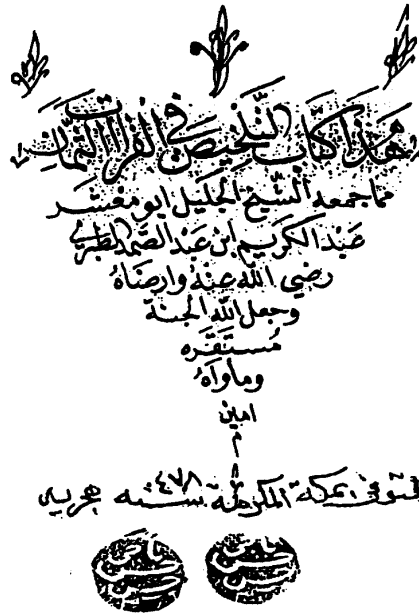 هذا كتاب التلخيص في القراات الثمان
مما جمعه الشيخ الجليل ابو معشر
عبد الكريم ابن عبد الصمد الطبري
رضي الله عنه وارضاه
وجعل الله الجنة
مستقره
وماواه
امين
م
توفى بمكة المكرمة سنه ٤٧٨ هجريه